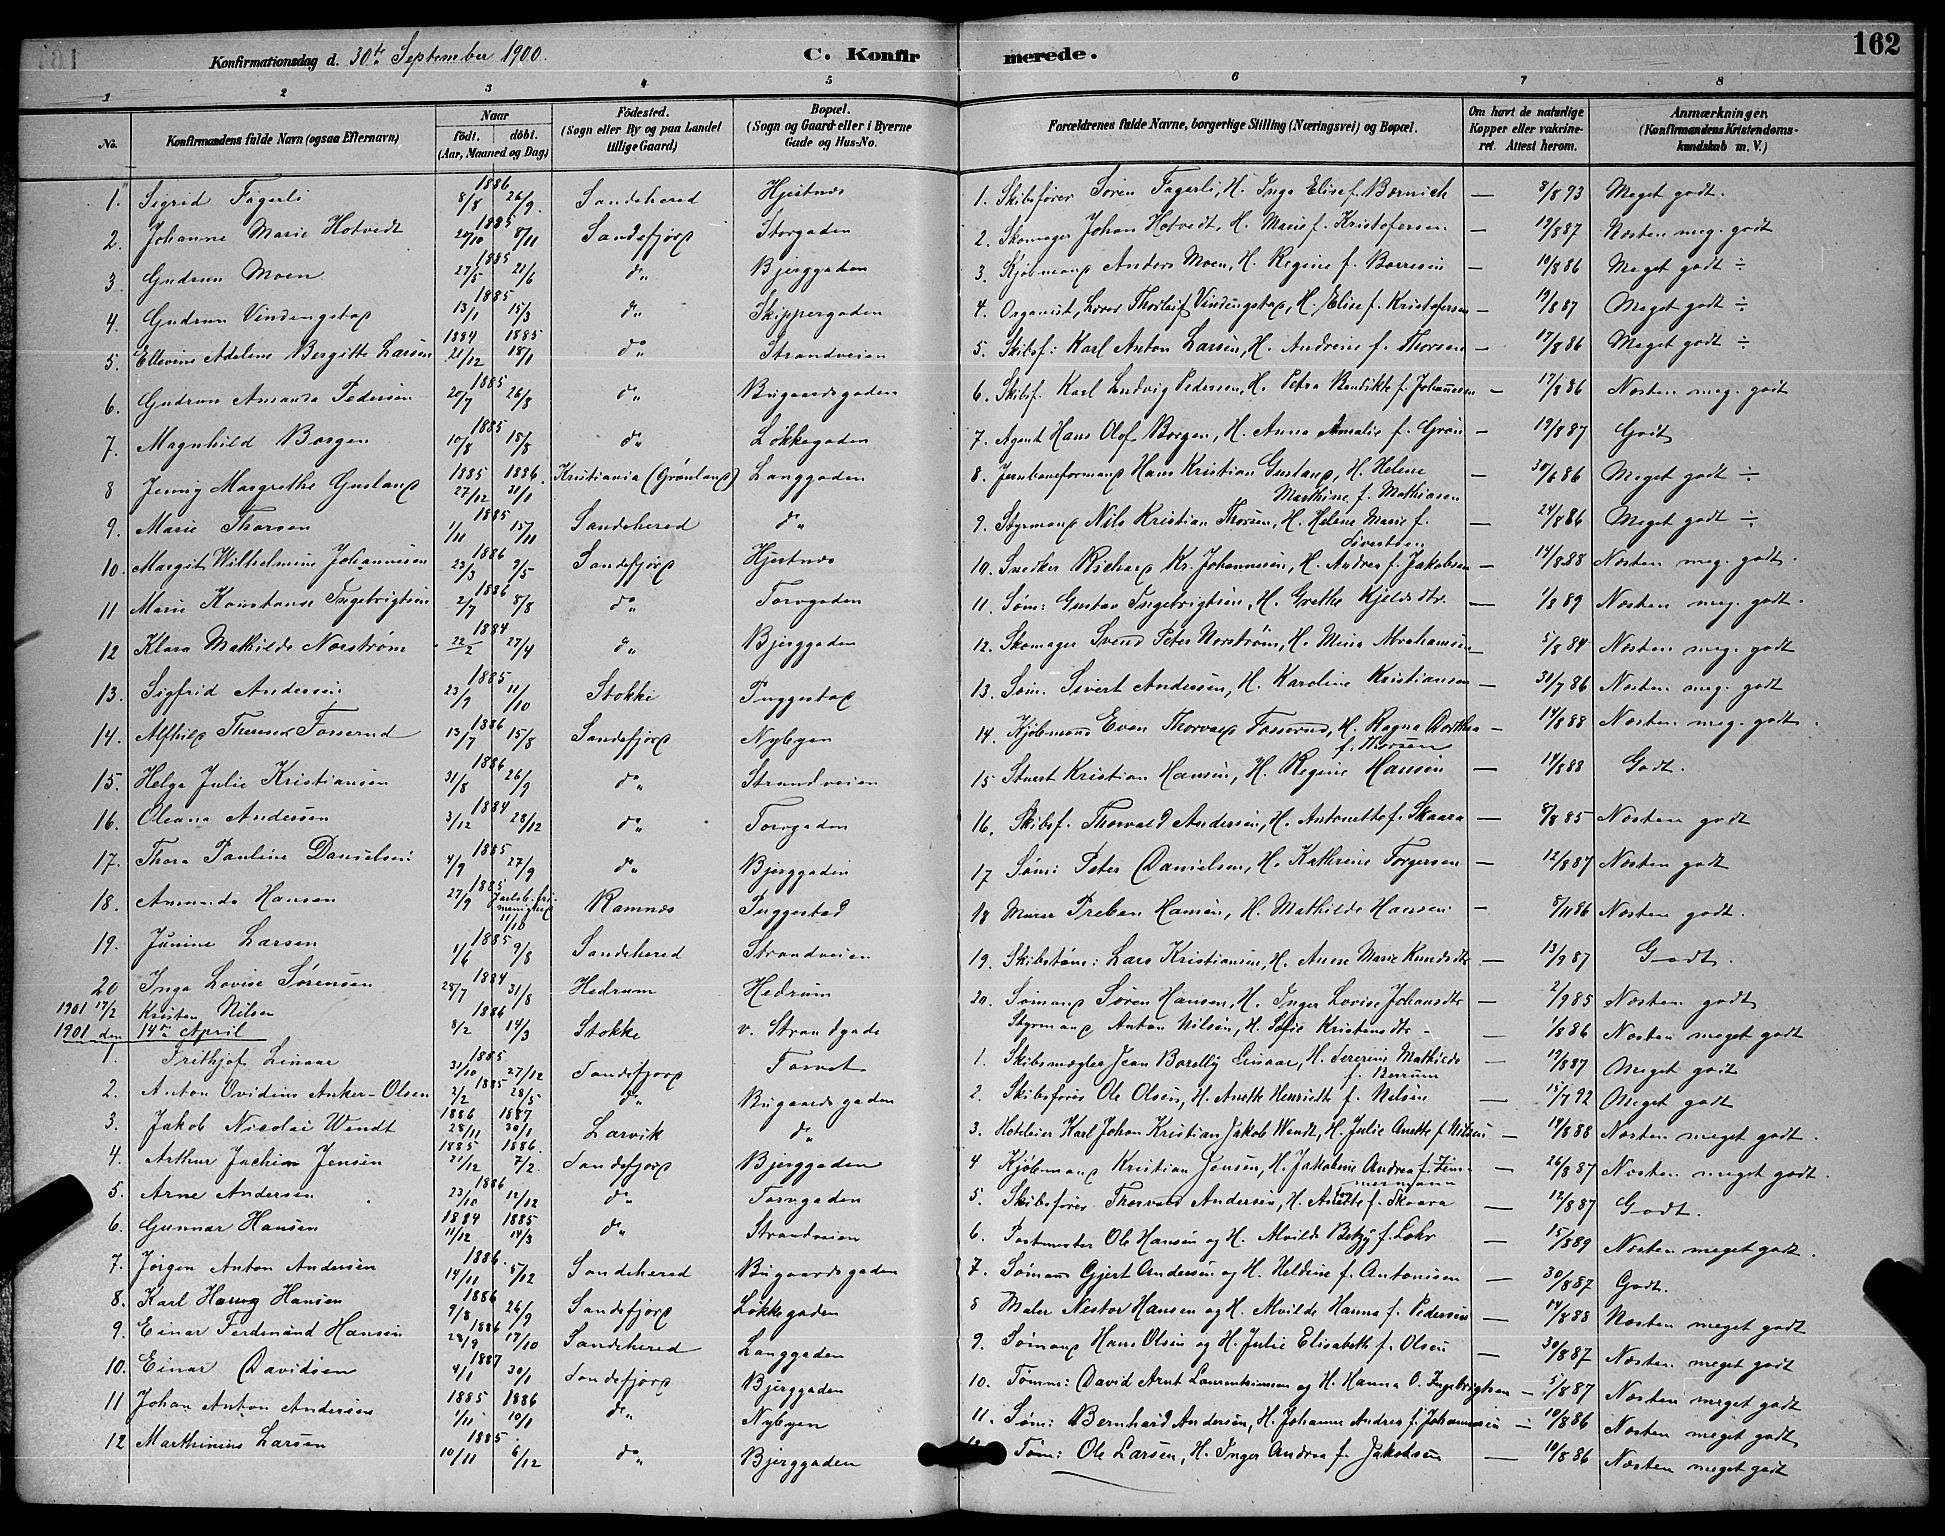 162
Konfirmationsdag d. 30te September 1900.
C. Konfirmerede.
1 2 3 4 5 6 7 8
No. Konfirmandens fulde Navn (ogsaa Efternavn) Naar födt. döbt. (Aar, Maaned og Dag) Födested. (Sogn eller By og paa Landet tillige Gaard) Bopæl. (Sogn og Gaard eller i Byerne Gade og Hus-No. Forældrenes fulde Navne, borgerlige Stilling (Næringsvei) og Bopæl. Om havt de naturlige Kopper eller vakcineret. Attest herom. Anmærkninger. (Konfirmandens Kristendomskundskab m. V.)
1. Sigrid Fagerli 1886 8/8 26/9 Sandehered Hjertnes 1. Skibsfører Søren Fagerli, H. Inga Elise f. Bernich — 8/8 93 Meget godt.
2. Johanne Marie Hotvedt 1885 20/10 8/11 Sandefjord Storgaden 2. Skomager Johan Hotvedt, H. Marie f. Kristofersen — 19/8 87 Næsten meg. godt
3. Gudrun Moen 1885 27/5 21/6 do Bjerggaden 3. Kjøbmand Anders Moen, H. Regine f. Borresen — 10/8 86 Meget godt ÷
4. Gudrun Vindingstad 1885 13/1 15/3 do Skippergaden 4. Organist, Lærer Thorleif Vindingstad, H. Elise f. Kristofersen — 19/8 87 Meget godt ÷
5. Ellevine Adeline Bergitte Larsen 1884 21/12 1885 18/1 do Strandveien 5. Skibsf: Karl Anton Larsen, H. Andreine f. Thorsen — 17/8 86 Meget godt ÷
6. Gudrun Amanda Pedersen 1885 20/7 26/8 do Bugaardsgaden 6. Skibsf. Karl Ludvig Pedersen, H. Petra Bendikte f. Johannesen — 17/8 86 Næsten meg. godt
7. Magnhild Borgen 1885 10/8 18/8 do Løkkegaden 7. Agent Hans Olof Borgen, H. Anna Amalie f. Grøn — 19/8 87 Godt
8 Jenny Margrethe Gusland 1885 27/12 1886 31/1 Kristiania (Grønland) Langgaden 8. Jernbaneformand Hans Kristian Gusland, H. Helene Marthine f. Mathiasen — 30/6 86 Meget godt ÷
9. Marie Thorsen 1885 1/11 15/11 Sandeherred do 9. Styrmand Nils Kristian Thorsen, H. Helene Marie f. Sivertsen — 24/8 86 Meget godt ÷
10. Margit Wilhelmine Johannesen 1886 23/3 9/5 Sandefjord Hjertnes 10. Snedker Richard Kr. Johannesen, H. Andrea f. Jakobsen — 14/8 88 Næsten meg. godt.
11 Marie Konstanse Ingebrigtsen 1886 2/7 8/8 do Torvgaden 11. Søm: Gustav Ingebrigtsen, H. Grethe Kjeldsdtr. — 1/8 89 Næsten meg. godt.
12 Klara Mathilde Norstrøm 1884 22/2 27/4 do Bjerggaden 12. Skomager Svend Peter Norstrøm, H. Mina Abrahamsen — 5/8 84 Næsten meg. godt
13. Sigfrid Andersen 1885 23/9 11/10 Stokke Puggestad 13. Søm. Sivert Andersen, H. Karoline Kristiansen — 30/7 86 Næsten meg. godt
14. Alfhild Fosserud 1886 13/7 15/8 Sandefjord Nybyen 14. Kjøbmand Even Thorvald Fosserud, H. Ragna Dorthea f. Thorsen — 14/8 88 Næsten meg. godt.
15. Helga Julie Kristiansen 1886 31/8 26/9 do Strandveien 15 Stuert Kristian Hansen, H. Regine Hansen — 14/8 88 Godt.
16. Oleana Andersen 1884 3/12 28/12 do Torvgaden 16. Skibsf. Thorvald Andersen, H. Antonette f. Skaara — 8/8 85 Næsten godt
17. Thora Pauline Danielsen 1885 4/9 27/9 do Bjerggaden 17 Søm: Peter Danielsen, H. Kathrine Torgersen — 12/8 87 Næsten godt
18. Amanda Hansen 1885 27/9 11/10 Ramnes Puggestad 18 Murer Preben Hansen, H. Mathilde Hansen — 8/11 86 Næsten godt.
19. Junine Larsen 1885 1/6 9/8 Sandeherred Strandveien 19. Skibstøm: Lars Kristiansen, H. Anne Marie Knudsdtr — 13/9 87 Godt.
20 Inga Lovise Sørensen 1884 28/7 31/8 Hedrum Hedrum 20. Sømand Søren Hansen, H. Inger Lovise Johansdtr — 2/9 85 Næsten godt
1901 17/2 Kristen Nilsen 1886 8/2 14/3 Stokke v. Strandgade Styrmand Anton Nilsen, H. Sofie Kristensdtr. — 1/8 86 Næsten meget godt
1901 den 14de April
1. Frithjof Linaae 1885 31/10 27/12 Sandefjord Torvet 1. Skibsmægler Jean Borelly Linaae, H. Sererine Mathilde f. Berrum — 19/8 87 Meget godt
2. Anton Ovidius Anker-Olsen 1885 2/2 28/5 do Bugaardsgaden 2. Skibsfører Ole Olsen, H. Anette Henriette f. Nilsen — 15/7 92 Meget godt
3. Jakob Nicolai Wendt 1886 28/11 1887 30/1 Larvik do 3. Hoteleier Karl Johan Kristian Jakob Wendt, H. Julie Anette f. Nilsen — 14/8 88 Næsten meget godt.
4. Arthur Jachim Jensen 1885 21/12 1886 7/2 Sandefjord Bjerggaden 4 Kjøbmand Kristian Jensen, H. Jakobine Andrea f. Zimmermann — 26/8 87 Næsten meget godt.
5. Arne Andersen 1886 23/10 12/12 do Torvgaden 5. Skibsfører Thorvald Andersen, H. Anette f. Skaara — 12/8 87 Godt.
6. Gunnar Hansen 1884 11/12 1885 14/3 do Strandveien 6. Postmester Ole Hansen og H. Alvilde Betzy f. Lohr — 15/8 89 Næsten meget godt.
7. Jørgen Anton Andersen 1886 14/11 5/12 Sandeherred Bugaardsgaden 7. Sømand Gjert Andersen og H. Heldine f. Antonisen — 30/8 87 Godt.
8. Karl Hansen 1886 9/8 26/9 Sandefjord Løkkegaden 8 Maler Nestor Hansen og H. Alvilde Hanna f. Pedersen — 14/8 88 Næsten meget godt
9. Einar Ferdinand Hansen 1886 28/9 17/10 Sandeherred Langgaden 9. Sømand Hans Olsen og H. Julie Elisabeth f. Olsen — 30/8 87 Næsten meget godt
10. Einar Davidsen 1887 4/1 30/1 Sandefjord Bjerggaden 10. Tømm: David Arnt Laurentiussen og H. Hanna O. Ingebrigtsen — 5/8 87 Næsten meget godt
11 Johan Anton Andersen 1885 1/11 1886 10/1 do Nybyen 11. Søm: Bernhard Andersen, H. Johanne Andrea f. Johannesen — 10/8 86 Næsten meget godt
12 Marthinius Larsen 1885 10/11 6/12 do Bjerggaden Tøm: Ole Larsen, H. Inger Andrea f. Jakobsen — 10/8 86 Næsten meget godt